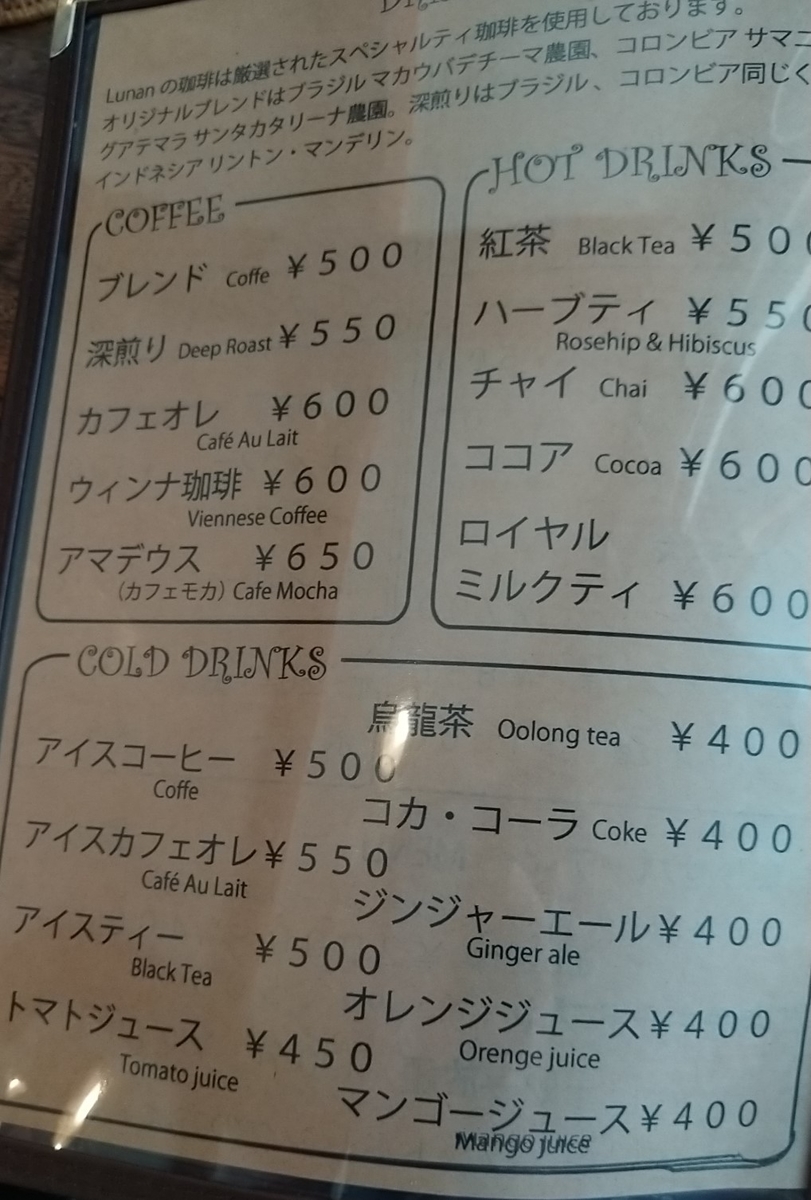 Lunan の珈琲は厳選されたスペシャルティ珈琲を使用しております。
オリジナルブレンドはブラジル マカウバデチーマ農園、コロンビア サマニ
グアテマラ サンタカタリーナ農園。深煎りはブラジル、コロンビア同じく
インドネシア リントン・マンデリン。
COFFEE
ブレンド Coffe ¥500
深煎り Deep Roast ¥550
カフェオレ ¥600
Café Au Lait
ウィンナ珈琲 ¥600
Viennese Coffee
アマデウス ¥650
（カフェモカ）Cafe Mocha
HOT DRINKS
紅茶 Black Tea ¥500
ハーブティ ¥550
Rosehip & Hibiscus
チャイ Chai ¥600
ココア Cocoa ¥600
ロイヤル
ミルクティ ¥600
COLD DRINKS
アイスコーヒー ¥500
Coffe
アイスカフェオレ¥550
Café Au Lait
アイスティー ¥500
Black Tea
トマトジュース ¥450
Tomato juice
烏龍茶 Oolong tea ¥400
コカ・コーラ Coke ¥400
ジンジャーエール¥400
Ginger ale
オレンジジュース¥400
Orenge juice
マンゴージュース¥400
Mango juice